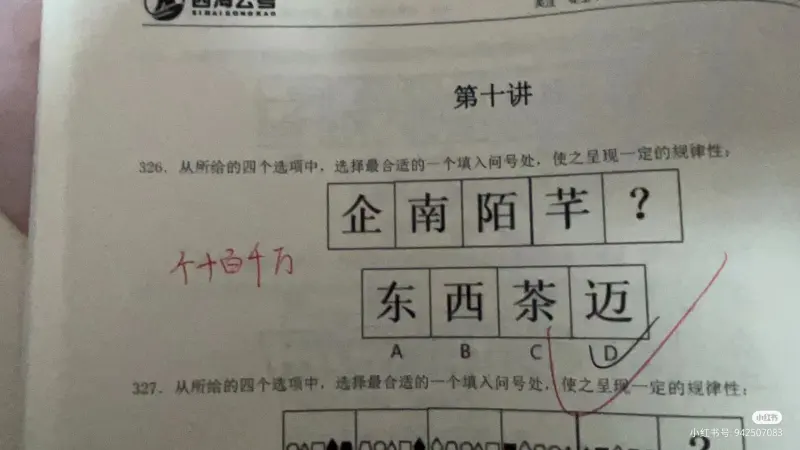 四海公考
SIHAIGONGKAO
第十讲
326. 从所给的四个选项中，选择最合适的一个填入问号处，使之呈现一定的规律性：
企 南 陌 芊 ？
个十百千万
东 西 茶 迈
A B C D
327. 从所给的四个选项中，选择最合适的一个填入问号处，使之呈现一定的规律性：
?
小红书
小红书号: 942507083